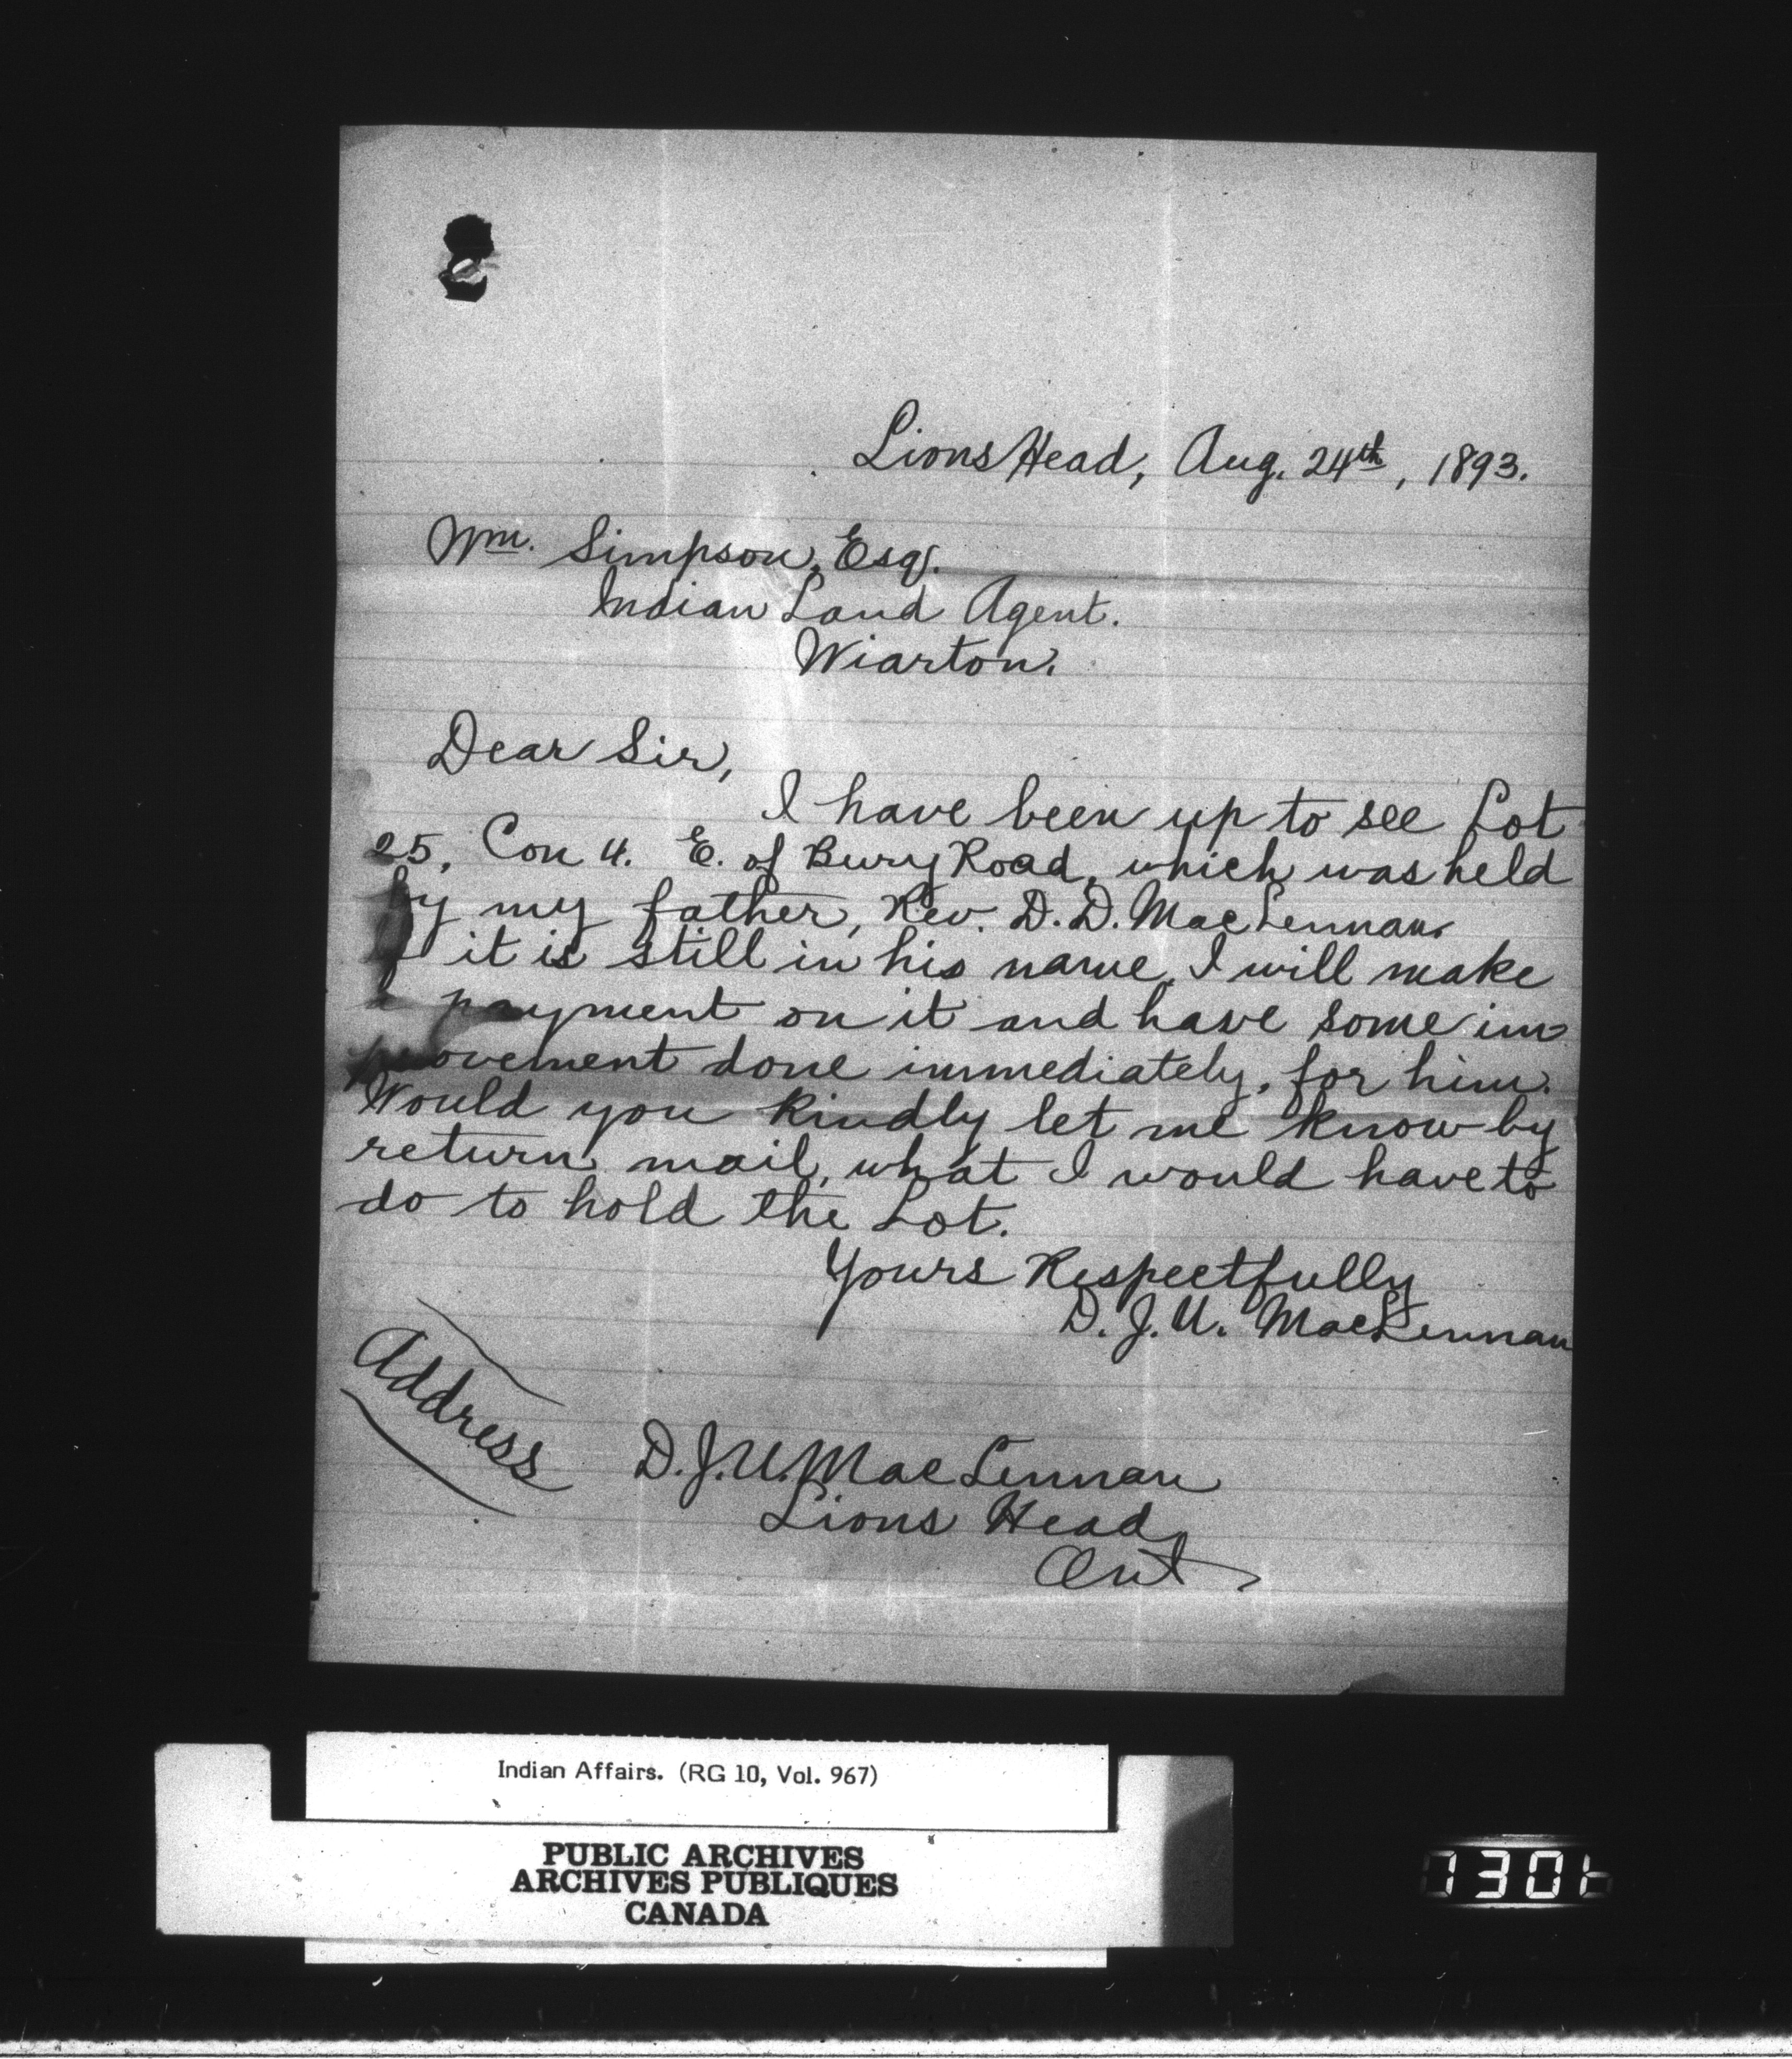 Lions Head, Aug. 24th, 1893.
Wm. Simpson, Esq.
Indian Land Agent.
Wiarton.
Dear Sir,
I have been up to see Lot
25, Con 4. E. of Bury Road, which was held
by my father, Rev. D. D. MacLennan.
If it is still in his name, I will make
a payment on it and have some im-
provement done immediately, for him.
Would you kindly let me know by
return mail, what I would have to
do to hold the Lot.
Yours Respectfully
D. J. U. MacLennan
Address
D. J. U. MacLennan
Lions Head
Ont
Indian Affairs. (RG 10, Vol. 967)
PUBLIC ARCHIVES
ARCHIVES PUBLIQUES
CANADA